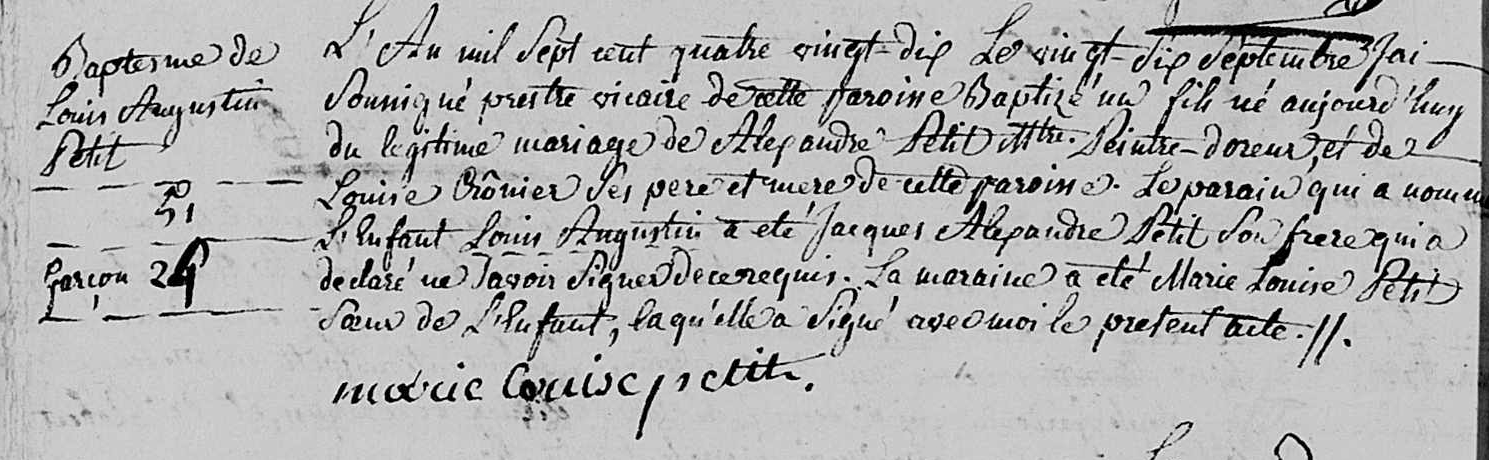 Baptesme de
Louis Augustin
Petit
51
garçon 24
L'An mil sept cent quatre vingt-dix Le vingt-six septembre Jai
soussigné prestre vicaire de cette paroisse Baptizé un fils né aujourd'huy
du legitime mariage de Alexandre Petit Mtre. Peintre-doreur, et de
Louise Crônier ses pere et mere de cette paroisse. Le parain qui a nommé
L'Enfant Louis Augustin a eté Jacques Alexandre Petit son frere qui a
declaré ne savoir signer de ce requis. La maraine a eté Marie Louise Petit
sœur de L'Enfant, laquelle a signé avec moi le present acte.//.
marie Louise petit.